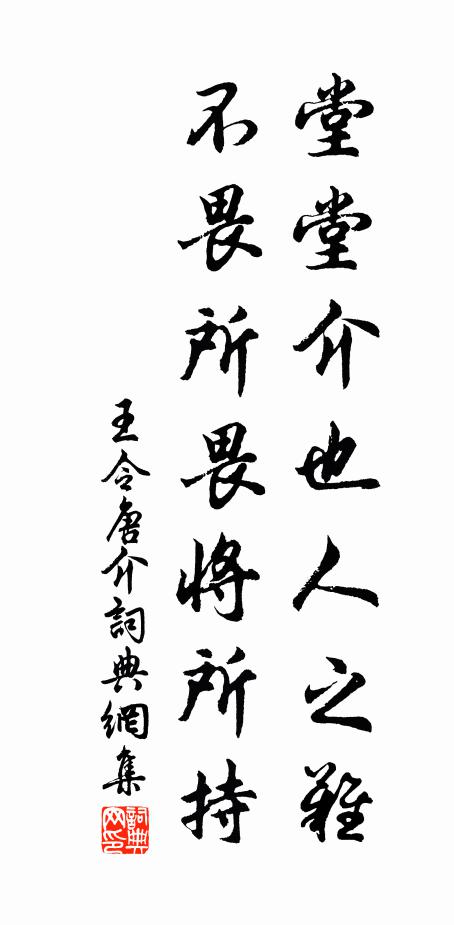 堂堂介也人之難
不畏所畏將所持
王令唐介詞典網集
詞典网印